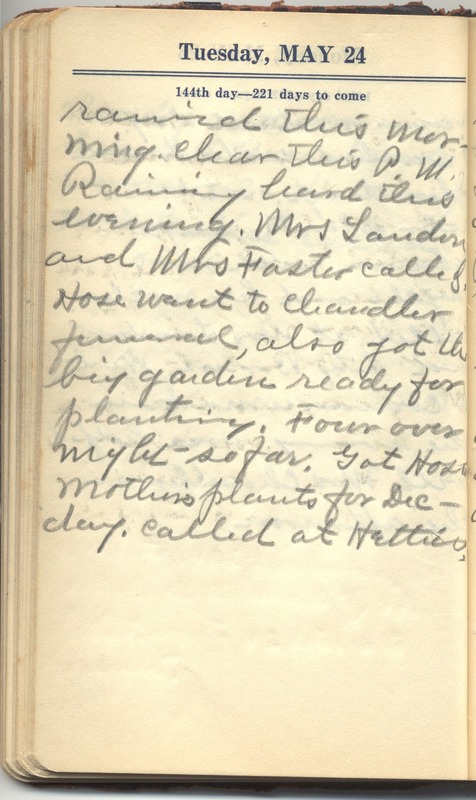 Tuesday, MAY 24
144th day—221 days to come
rained this mor-
ning. Clear this P. M.
Raining hard this
evening. Mrs Landon
and Mrs Foster called.
Hose want to Chandler
funeral, also got the
big garden ready for
planting. Four over
night so far. Got Hose
Mothers plants for Dec-
day. called at Hetties,